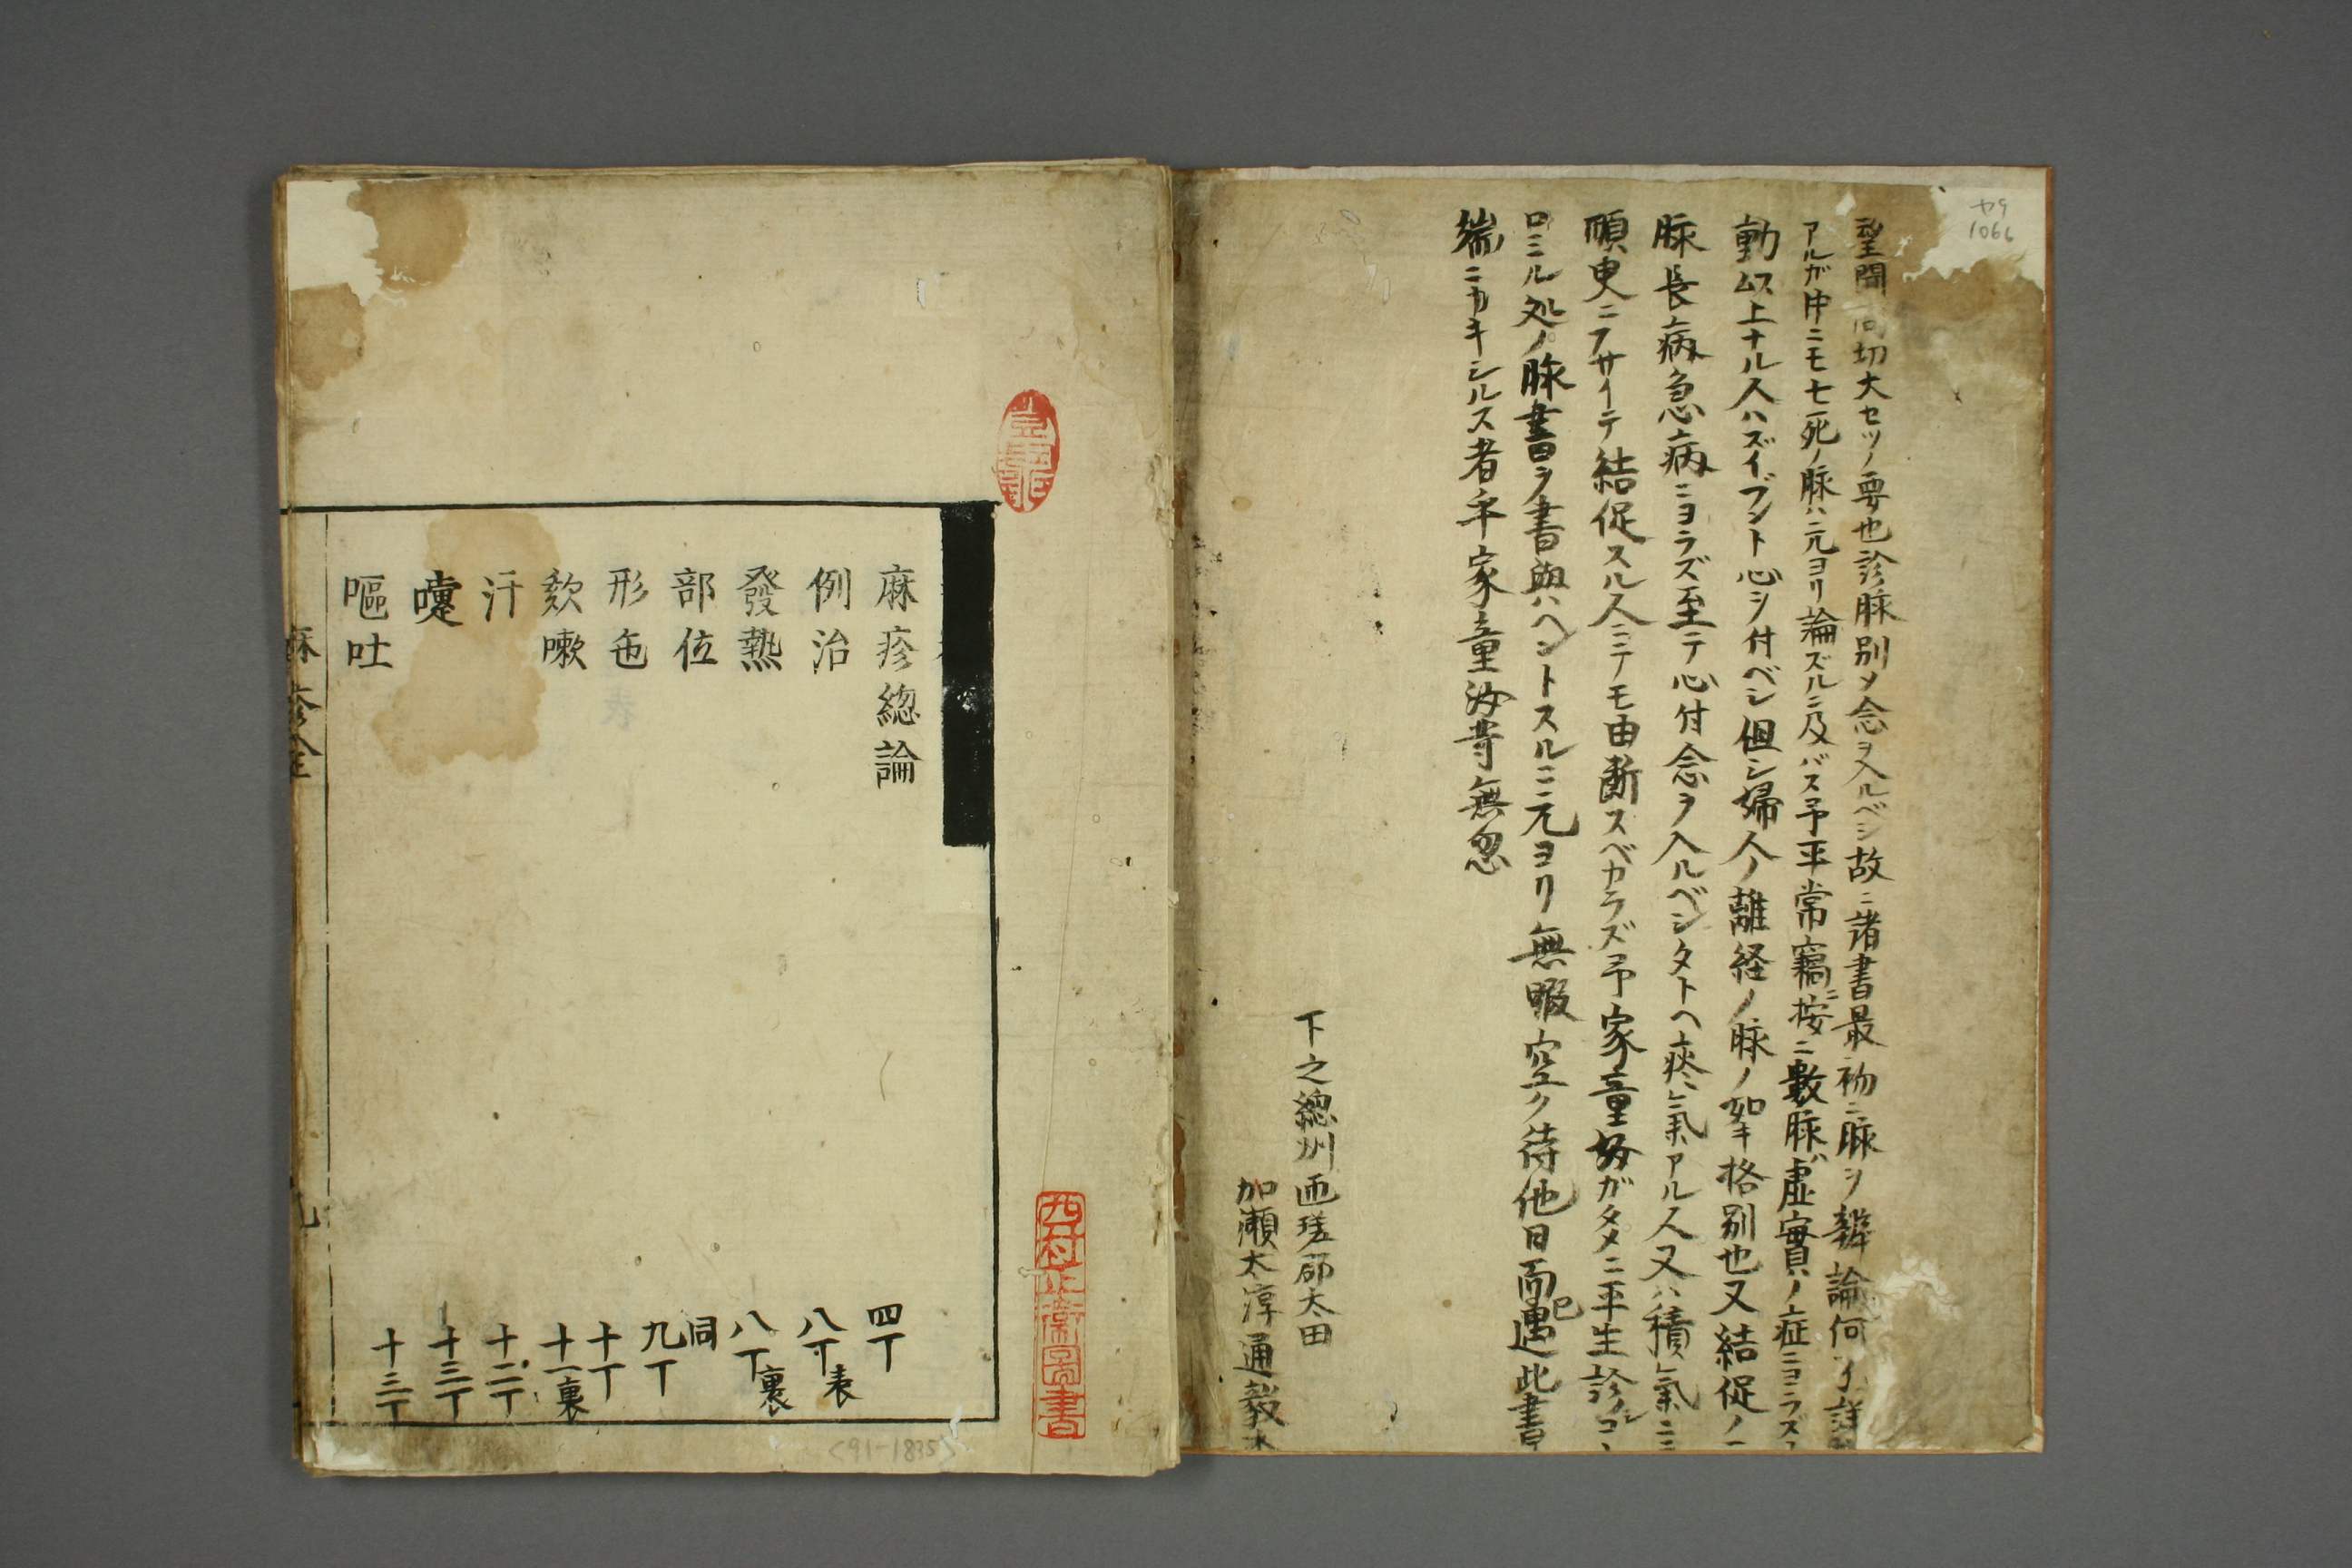 望聞問切大セツノ要也診脉別メ念ヲ入ルベシ故ニ諸書最初ニ脉ヲ辨論何
アルガ中ニモ七死ノ脉ハ元ヨリ論ズルニ及バス予平常竊ニ按ニ數脉ハ虚實ノ症ニヨラズ
動以上ナル人ハズイブント心ヲ付ベシ但シ婦人ノ離経ノ脉ノ如キ格別也又結促ノ
脉長病急病ニヨラズ至テ心付念ヲ入ルベシタトヘ痰氣アル人又ハ積氣ニ
順史ニフサイテ結促スル人ニテモ由断スベカラズ予家童等ガタメニ平生診
ロミル処ノ脉書ヲ書與ヘントスルニ元ヨリ無暇空ク待他日而已遇此書
端ニカキシルス者乎家童汝等無忽
下之總州匝瑳郡太田
加瀬太淳通毅
ヤ9
1066
麻疹総論 四丁
例治 八丁表
發熱 八丁裏
部位 同
形色 九丁
欬嗽 十丁
汗 十一裏
嚏 十二丁
嘔吐 十三丁
十三丁
麻疹全
西村正衛図書
<91-1835>